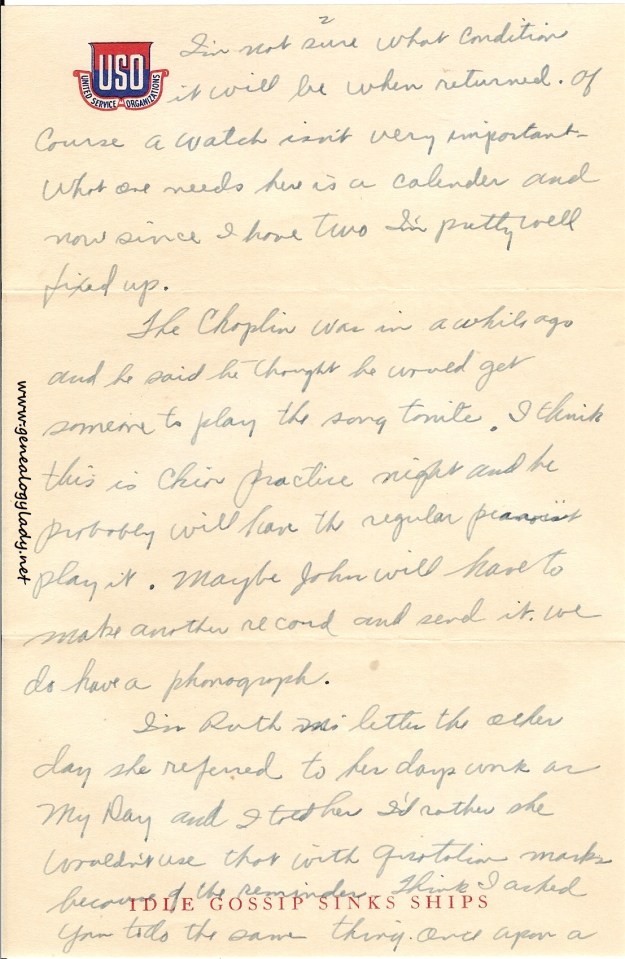 2
USO
UNITED SERVICE ORGANIZATIONS
I'm not sure what condition
it will be when returned. Of
course a watch isn't very important-
What one needs here is a calender and
now since I have two I'm pretty well
fixed up.
The Choplin was in awhile ago
and he said he thought he would get
someone to play the song tonite. I think
this is choir practice night and he
probably will have the regular pianoist
play it. Maybe John will have to
make another record and send it. We
do have a phonograph.
In Ruth letter the other
day she referred to her days work as
My Day and I told her I'd rather she
wouldn't use that with quotation marks
because of the reminder. Think I asked
you to do the same thing. Once upon a
IDLE GOSSIP SINKS SHIPS
www.genealogylady.net